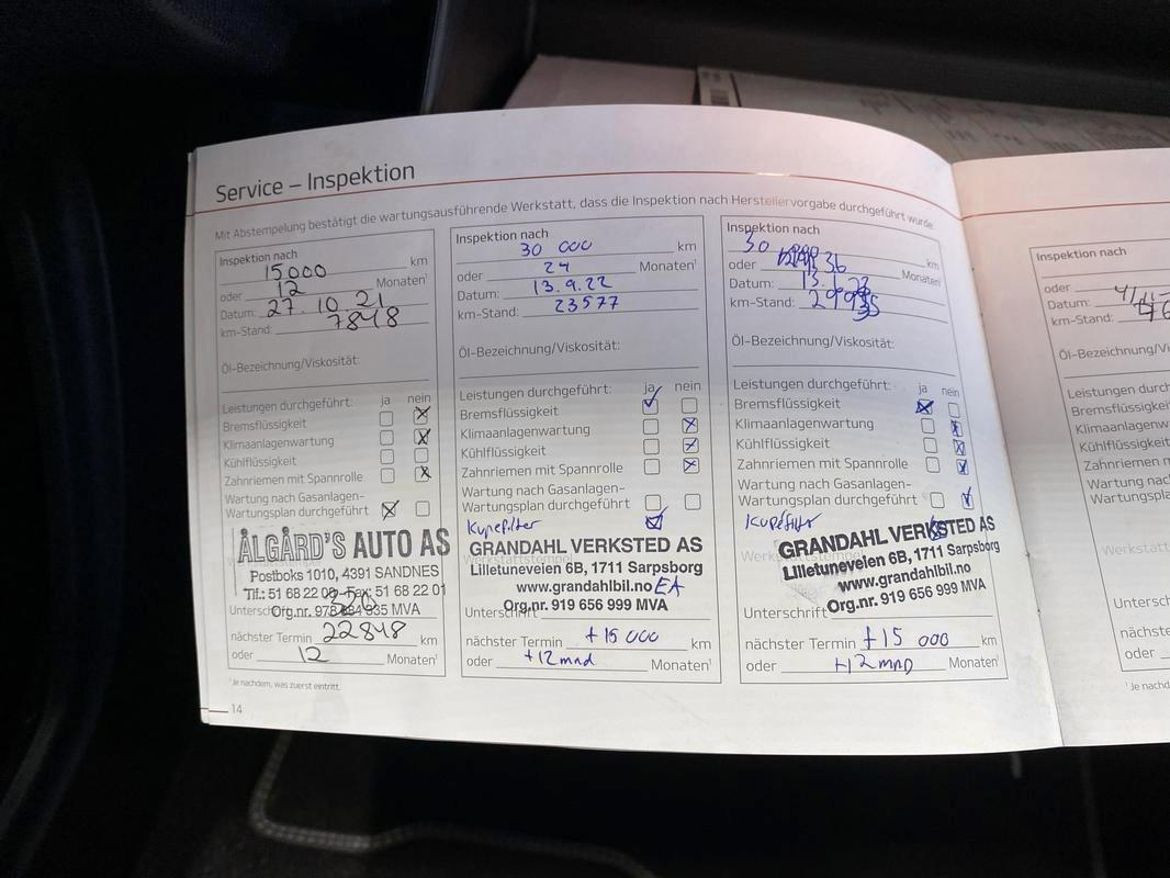 Service – Inspektion
Mit Abstempelung bestätigt die wartungsausführende Werkstatt, dass die Inspektion nach Herstellervorgabe durchgeführt wurde.
Inspektion nach
15.000 km
oder 12 Monaten¹
Datum: 27.10.21
km-Stand: 7848
Öl-Bezeichnung/Viskosität:
Leistungen durchgeführt: ja nein
Bremsflüssigkeit
Klimaanlagenwartung
Kühlflüssigkeit
Zahnriemen mit Spannrolle
Wartung nach Gasanlagen-
Wartungsplan durchgeführt
ÅLGÅRD'S AUTO AS
Postboks 1010, 4391 SANDNES
Tlf.: 51 68 22 00 – Fax: 51 68 22 01
Org.nr. 935 MVA
nächster Termin 22848 km
oder 12 Monaten¹
¹Je nachdem, was zuerst eintritt.
14
Inspektion nach
30 000 km
oder 24 Monaten¹
Datum: 13.9.22
km-Stand: 23577
Öl-Bezeichnung/Viskosität:
Leistungen durchgeführt: ja nein
Bremsflüssigkeit
Klimaanlagenwartung
Kühlflüssigkeit
Zahnriemen mit Spannrolle
Wartung nach Gasanlagen-
Wartungsplan durchgeführt
Kupefilter
GRANDAHL VERKSTED AS
Lilletuneveien 6B, 1711 Sarpsborg
www.grandahlbil.no EA
Org.nr. 919 656 999 MVA
Unterschrift
nächster Termin +15 000 km
oder +12 mnd Monaten¹
Inspektion nach
30 km
oder 36 Monaten¹
Datum: 13.
km-Stand:
Öl-Bezeichnung/Viskosität:
Leistungen durchgeführt: ja nein
Bremsflüssigkeit
Klimaanlagenwartung
Kühlflüssigkeit
Zahnriemen mit Spannrolle
Wartung nach Gasanlagen-
Wartungsplan durchgeführt
Kupefilter
GRANDAHL VERKSTED AS
Lilletuneveien 6B, 1711 Sarpsborg
www.grandahlbil.no
Org.nr. 919 656 999 MVA
Unterschrift
nächster Termin +15 000 km
oder +12 mnd Monaten¹
Inspektion nach
oder
Datum:
km-Stand:
Öl-Bezeichnung/Vis
Leistungen
Bremsflüssigk
Klimaanlagenw
Kühlflüssigkeit
Zahnriemen m
Wartung nach
Wartungsplan
Werkstatt
Unterschr
nächste
oder
¹Je nach